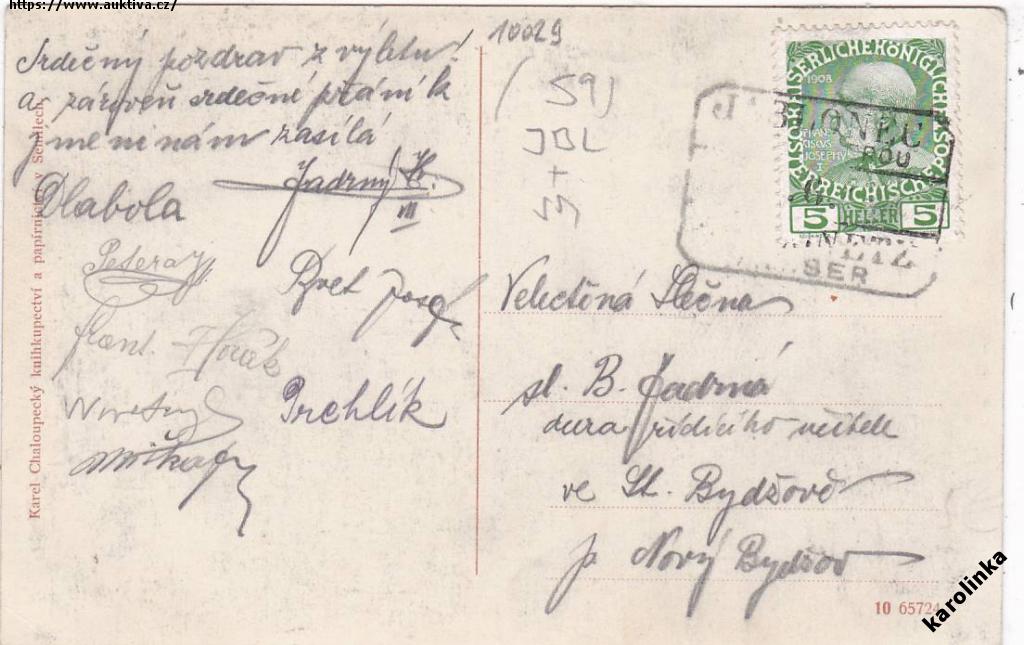 https://www.auktiva.cz/
Srdečný pozdrav z výletu!
a zároveň srdečné přání k
jmeninám zasílá
Jadrný
III
Dlabola
Josef
Frant. Horák
Prchlík
Karel Chaloupecký knihkupectví a papírnictví v Semilech
10029
(59)
JBL
+
KAISERLICHE KÖNIGLICHE
ÖSTERREICHISCHE POST
1908
FRANCISCUS JOSEPHVS I
5 HELLER 5
JABLONEC
ROU
ISER
Velectěná Slečna
sl. B. Jadrná
dcera řídícího učitele
ve St. Bydžově
p Nový Bydžov
10 65724
karolinka